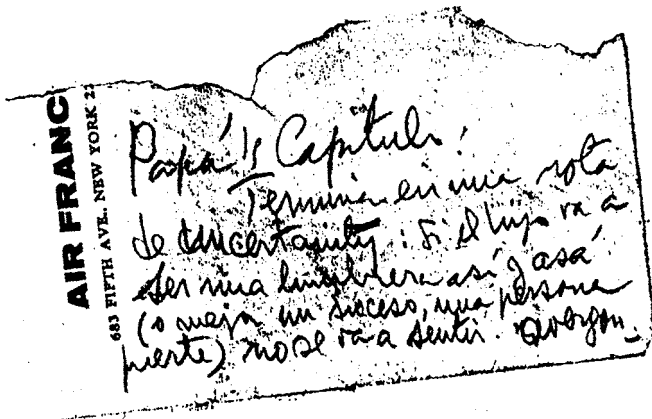 AIR FRANC
683 FIFTH AVE., NEW YORK 22
Papá's Capítulo:
Termina en una nota
de uncertainty: Si el hijo va a
ser una lumbrera así y asá
(o mejor un suceso, una persona
fuerte) no se va a sentir.